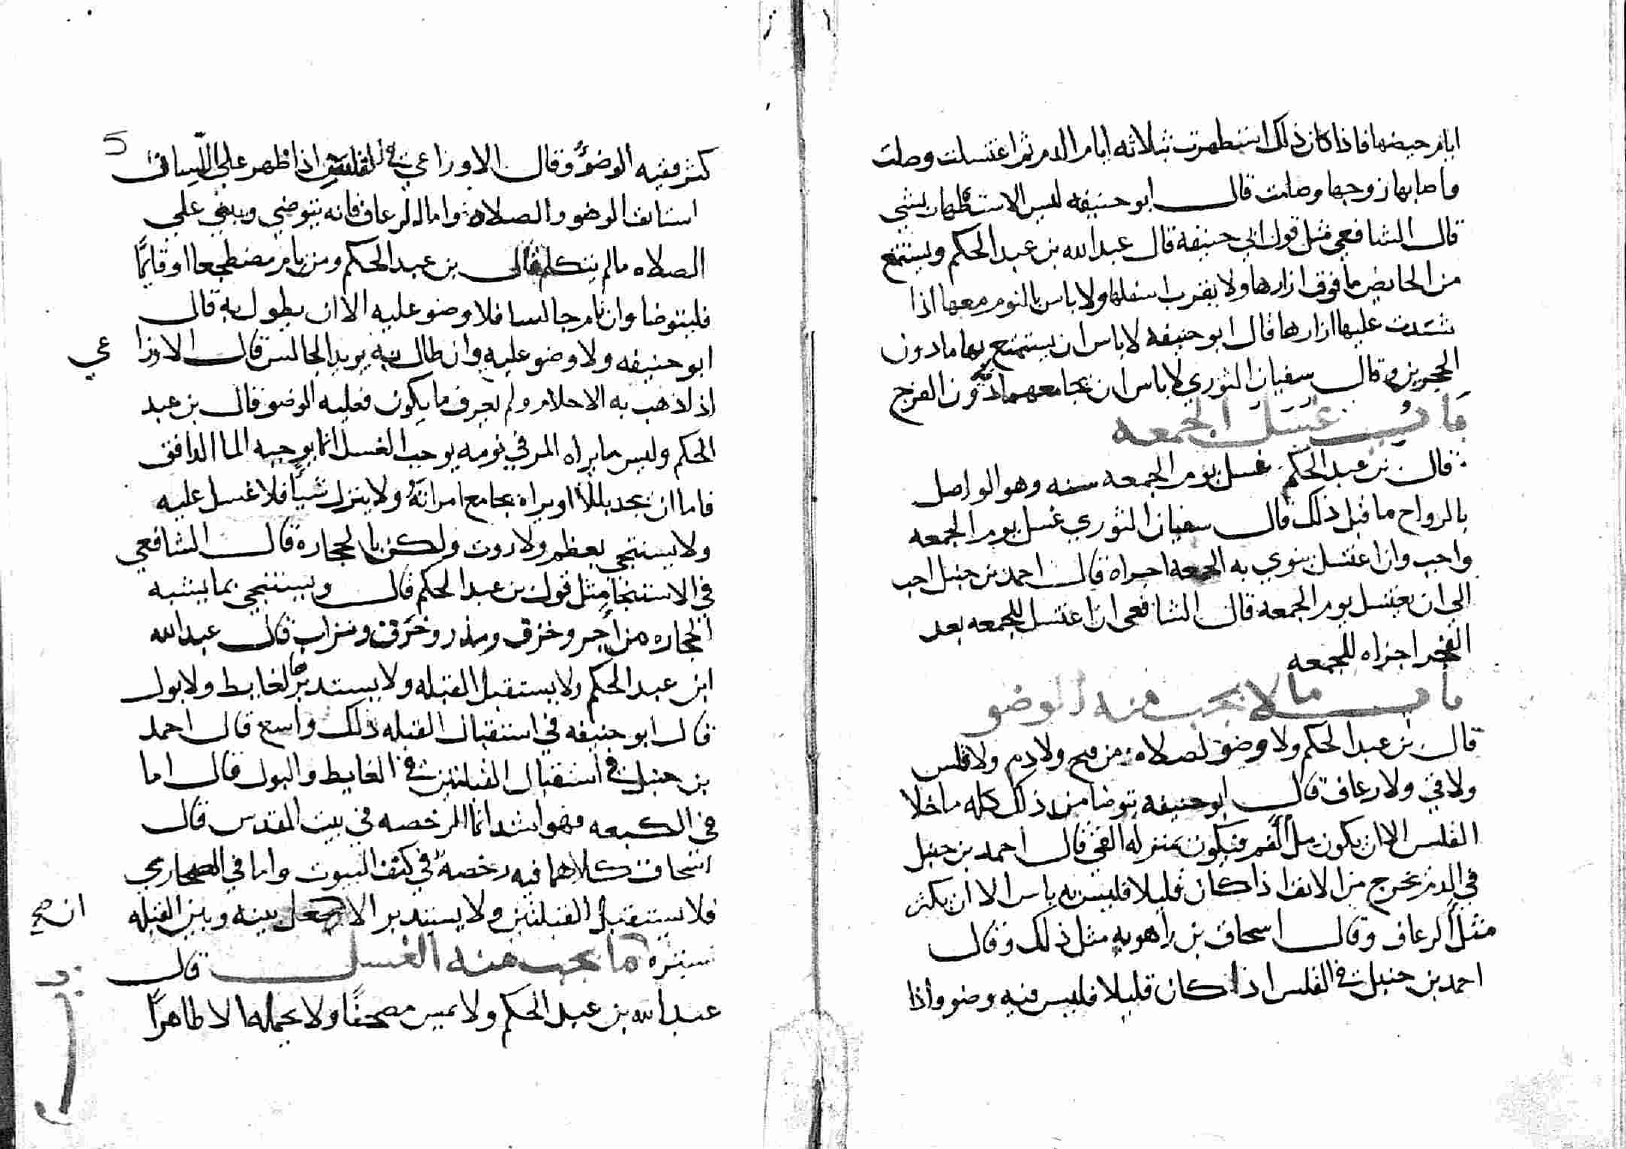 ايام حيضها فاذا كان ذلك استطهرت بثلاثه ايام الدم ثم اغتسلت وصلت
واصابها زوجها وصلت قال ابو حنيفه ليس الاستظهار بشي
قال الشافعي مثل قول ابي حنيفة قال عبد الله بن عبد الحكم ويستمتع
من الحايض ما فوق ازارها ولا يقرب اسفلها ولا باس بالنوم معها اذا
شدت عليها ازارها قال ابو حنيفه لا باس ان يستمتع بها ما دون
الحجرين وقال سفيان الثوري لا باس ان يجامعهما دون الفرج
باب غسل الجمعه
قال بن عبد الحكم غسل يوم الجمعه سنه وهو الواصل
بالرواح ما قبل ذلك قال سفيان الثوري غسل يوم الجمعه
واجب وان اغتسل ينوي به الجمعة اجراه قال احمد بن حنبل احب
الي ان يغتسل يوم الجمعه قال الشافعي ان اغتسل للجمعه بعد
الفجر اجزاه للجمعه
باب ما لا يجب منه الوضو
قال بن عبد الحكم ولا وضو لصلاه من قيح ولا دم ولا قلس
ولا قي ولا رعاف قال ابو حنيفه يتوضا من ذلك كله ما خلا
القلس الا ان يكون مل الفم فيكون بمنزله القي قال احمد بن حنبل
في الدم يخرج من الانف اذا كان قليلا فليس به باس الا ان يكثر
مثل الرعاف وقال اسحاق بن راهويه مثل ذلك وقال
احمد بن حنبل في القلس اذا كان قليلا فليس فيه وضو واذا
5
كثر ففيه الوضوء وقال الاوزاعي في القلس اذا ظهر على اللسان
استانف الوضو والصلاه واما الرعاف فانه يتوضي ويبني علي
الصلاه مالم يتكلم قال بن عبد الحكم ومن نام مضطجعا او قايما
فليتوضا وان نام جالسا فلا وضو عليه الا ان يطول به قال
ابو حنيفه ولا وضو عليه وان طال به يريد الجالس قال الاوزاعي
اذا ذهب به الاحلام ولم يعرف ما يكون فعليه الوضو قال بن عبد
الحكم وليس ما يراه المر في نومه يوجب الغسل انما يوجبه الما الدافق
فاما ان يجد بللا او يراه يجامع امراته ولا ينزل شيا فلا غسل عليه
ولا يستنجي بعظم ولا روث ولكن بالحجاره قال الشافعي
في الاستنجا مثل قول بن عبد الحكم قال ويستنجي بما يشبه
الحجاره من اجر وخزف ومدر وخرق وتراب قال عبد الله
ابن عبد الحكم ولا يستقبل القبله ولا يستدبر لغايط ولا بول
قال ابو حنيفه في استقبال القبله ذلك واسع قال احمد
بن حنبل في استقبال القبلتين في الغايط والبول قال اما
في الكعبه فهو اشد انما الرخصه في بيت المقدس قال
اسحاق كلاهما فيه رخصة في كنف البيوت واما في الصحاري
فلا يستقبل القبلتين ولا يستدبر الا يجعل بينه وبين القبله
ان صح
ستره ما يجب منه الغسل قال
عبد الله بن عبد الحكم ولا يمس مصحفا ولا يحمله الا طاهرا